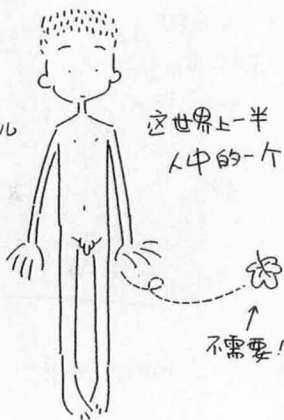 儿
这世界上一半
人中的一个
不需要!